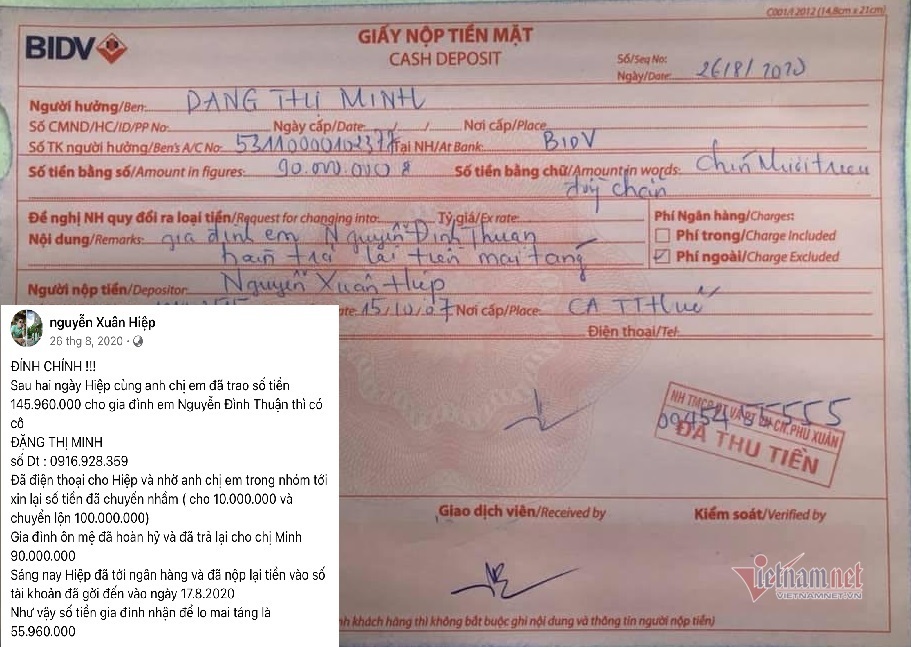 C001/I2012 (14,8cm x 21cm)
BIDV
GIẤY NỘP TIỀN MẶT
CASH DEPOSIT
Số/Seq No:
Ngày/Date: 26/8/2020
Người hưởng/Ben: DANG THỊ MINH
Số CMND/HC/ID/PP No: Ngày cấp/Date: / / Nơi cấp/Place
Số TK người hưởng/Ben's A/C No: 53110000102377 Tại NH/At Bank: BIDV
Số tiền bằng số/Amount in figures: 90.000.000 đ Số tiền bằng chữ/Amount in words: Chín Mươi triệu
đồng chẵn
Đề nghị NH quy đổi ra loại tiền/Request for changing into: Tỷ giá/Ex rate:
Phí Ngân hàng/Charges:
Nội dung/Remarks: gia đình em Nguyễn Đình Thuận
Phí trong/Charge Included
hoàn trả lại tiền mai táng
Phí ngoài/Charge Excluded
Người nộp tiền/Depositor: Nguyễn Xuân Hiệp
15/10/07 Nơi cấp/Place: CA TT Huế
Điện thoại/Tel:
NH TMCP ĐT VÀ PT CN. PHÚ XUÂN
ĐÃ THU TIỀN
Giao dịch viên/Received by
Kiểm soát/Verified by
khách hàng thì không bắt buộc ghi nội dung và thông tin người nộp tiền)
Vietnamnet
VIETNAMNET.VN
nguyễn Xuân Hiệp
26 thg 8, 2020
ĐÍNH CHÍNH !!!
Sau hai ngày Hiệp cùng anh chị em đã trao số tiền
145.960.000 cho gia đình em Nguyễn Đình Thuận thì có
cô
ĐẶNG THỊ MINH
số Dt : 0916.928.359
Đã điện thoại cho Hiệp và nhờ anh chị em trong nhóm tới
xin lại số tiền đã chuyển nhầm ( cho 10.000.000 và
chuyển lộn 100.000.000)
Gia đình ôn mệ đã hoàn hỷ và đã trả lại cho chị Minh
90.000.000
Sáng nay Hiệp đã tới ngân hàng và đã nộp lại tiền vào số
tài khoản đã gởi đến vào ngày 17.8.2020
Như vậy số tiền gia đình nhận để lo mai táng là
55.960.000